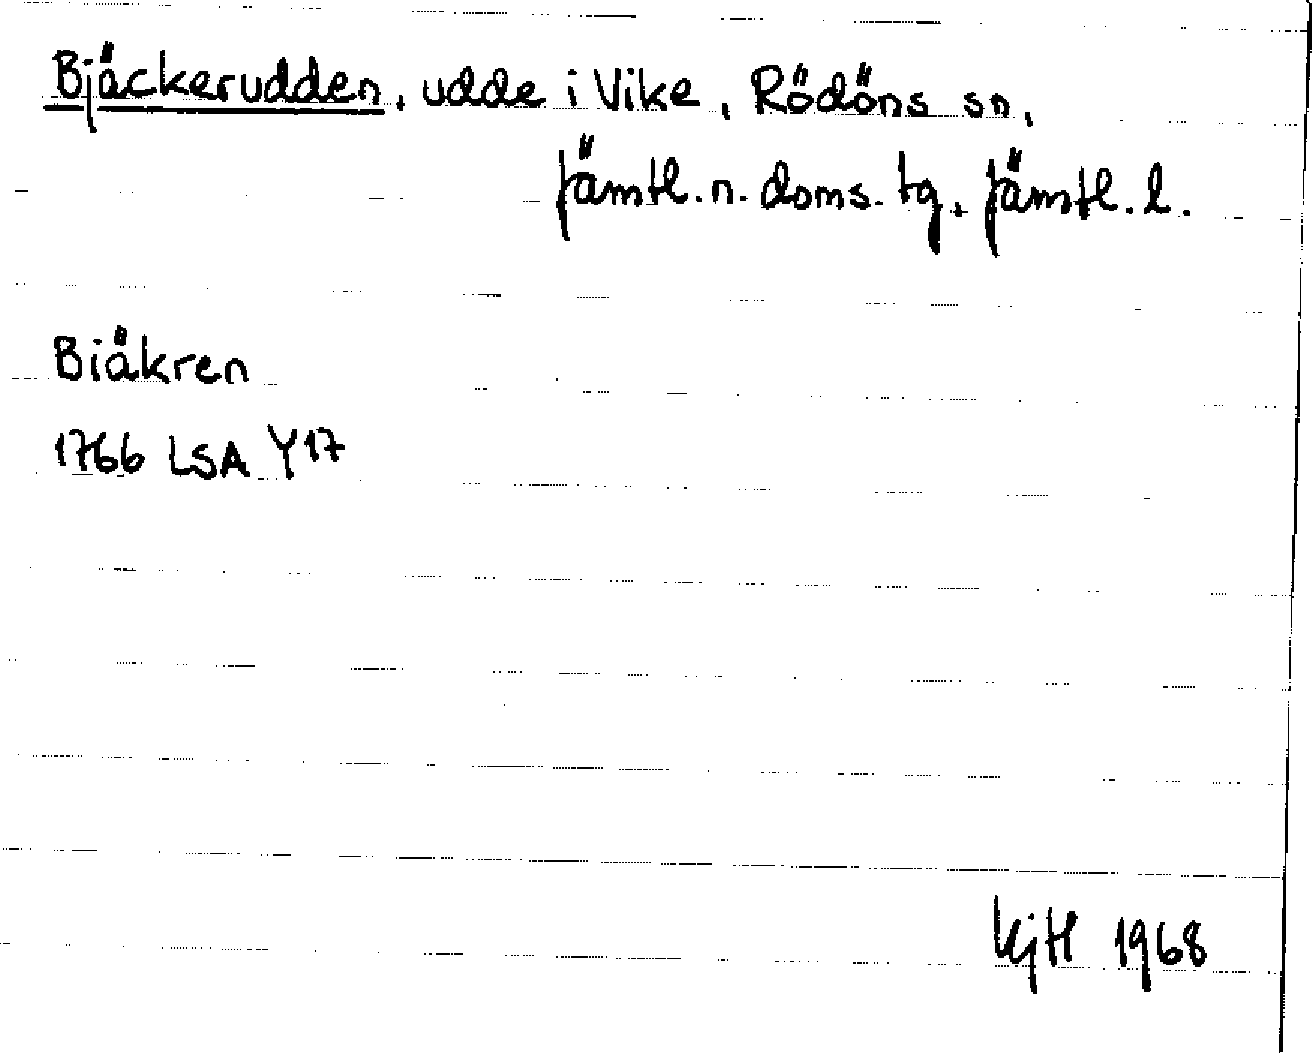 Bjäckerudden, udde i Vike, Rödöns sn,
Jämtl. n. doms. tg, Jämtl. l.
Biäkren
1766 LSA Y17
KjH 1968